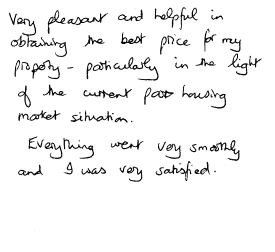 Very pleasant and helpful in
obtaining the best price for my
property - particularly in the light
of the current poor housing
market situation.
Everything went very smoothly
and I was very satisfied.